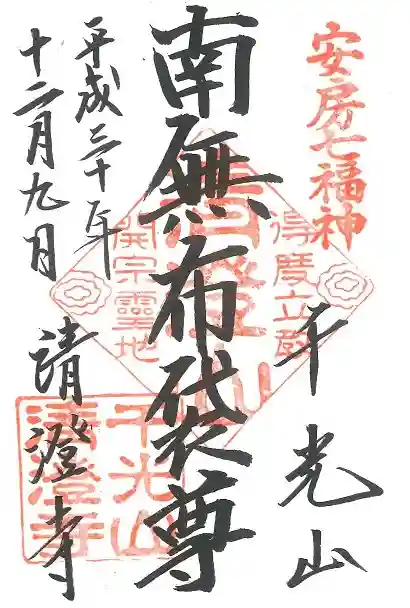 安房七福神
千光山
南無布袋尊
清澄山
得度立誓
開宗靈地
平成三十年
十二月九日
請澄寺
千光山
清澄寺